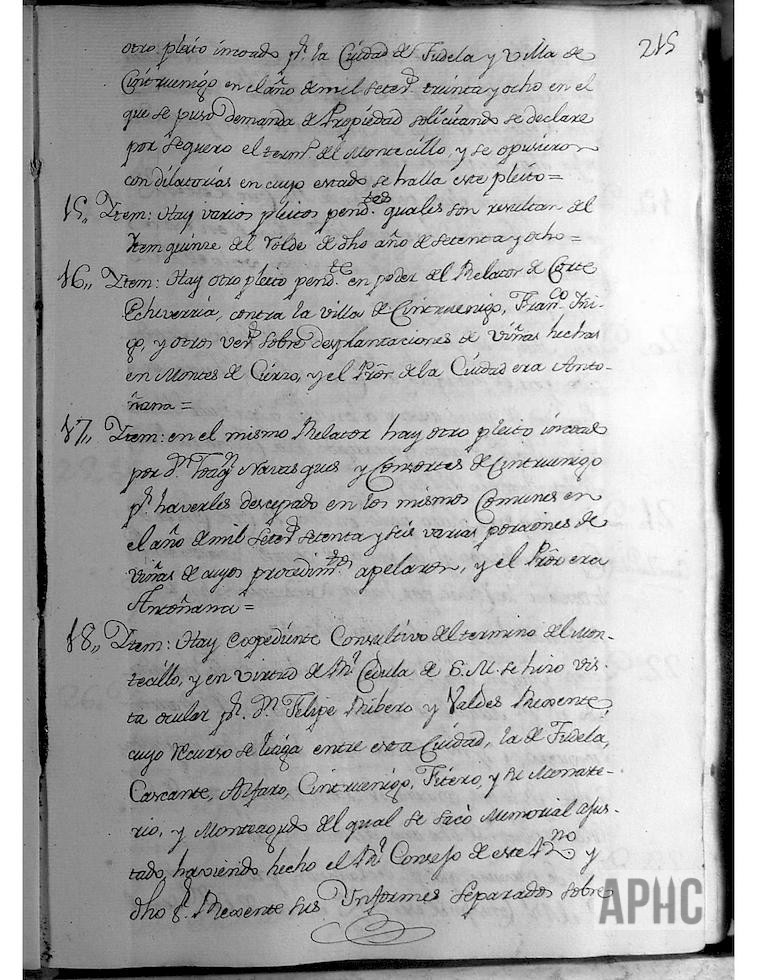 215
otro pleito incoado pr. la Ciudad de Tudela y Villa de
Cintruenigo en el año de mil setes. treinta y ocho en el
que se puso demanda de Propiedad solicitando se declare
por sequero el termo. del Montecillo, y se opusieron
con dilatorias en cuyo estado se halla este pleito=
15,, Ytem: Hay varios pleitos pendtes. quales son resultan del
Item quinze del Rolde de dho año de setenta y ocho=
16,, Ytem: Hay otro pleito pendte. en poder del Relator de Corte
Echeverria, contra la villa de Cintruenigo, Franco.
y otros vecs. sobre desplantaciones de viñas hechas
en Montes de Cierzo, y el Pror. de la Ciudad era Anto-
ñana=
17,, Ytem: en el mismo Relator hay otro pleito incoado
por Dn. Joaqn. Navasques y Consortes de Cintruenigo
pr. haverles descepado en los mismos Comunes en
el año de mil setes. setenta y seis varias porciones de
viñas de cuyos procedimtos. apelaron, y el Pror. era
Antoñana=
18,, Ytem: Hay Espediente Consultivo del termino del Mon-
tecillo, y en virtud de Rl. Cedula de S. M. se hizo vis-
ta ocular pr. Dn. Felipe Ribero y Valdes Rexente,
cuyo recurso se litiga entre esta Ciudad, la de Tudela,
Cascante, Alfaro, Cintruenigo, Fitero, y su Monaste-
rio, y Monteagudo del qual se sacò Memorial ajus-
tado, haviendo hecho el Rl. Consejo de este Rno y
dho Sr. Rexente sus Informes separados sobre
APHC